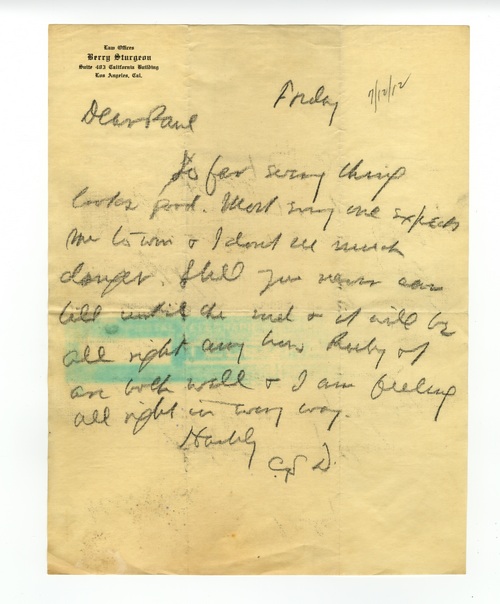 Law Offices
Berry Sturgeon
Suite 403 California Building
Los Angeles, Cal.
Friday 7/12/12
Dear Paul
So far every thing
looks good. Most every one expects
me to win & I dont see much
danger. Still you never can
tell until the end & it will be
all right any how Ruby &
are both well & I am feeling
all right in every way.
C S D